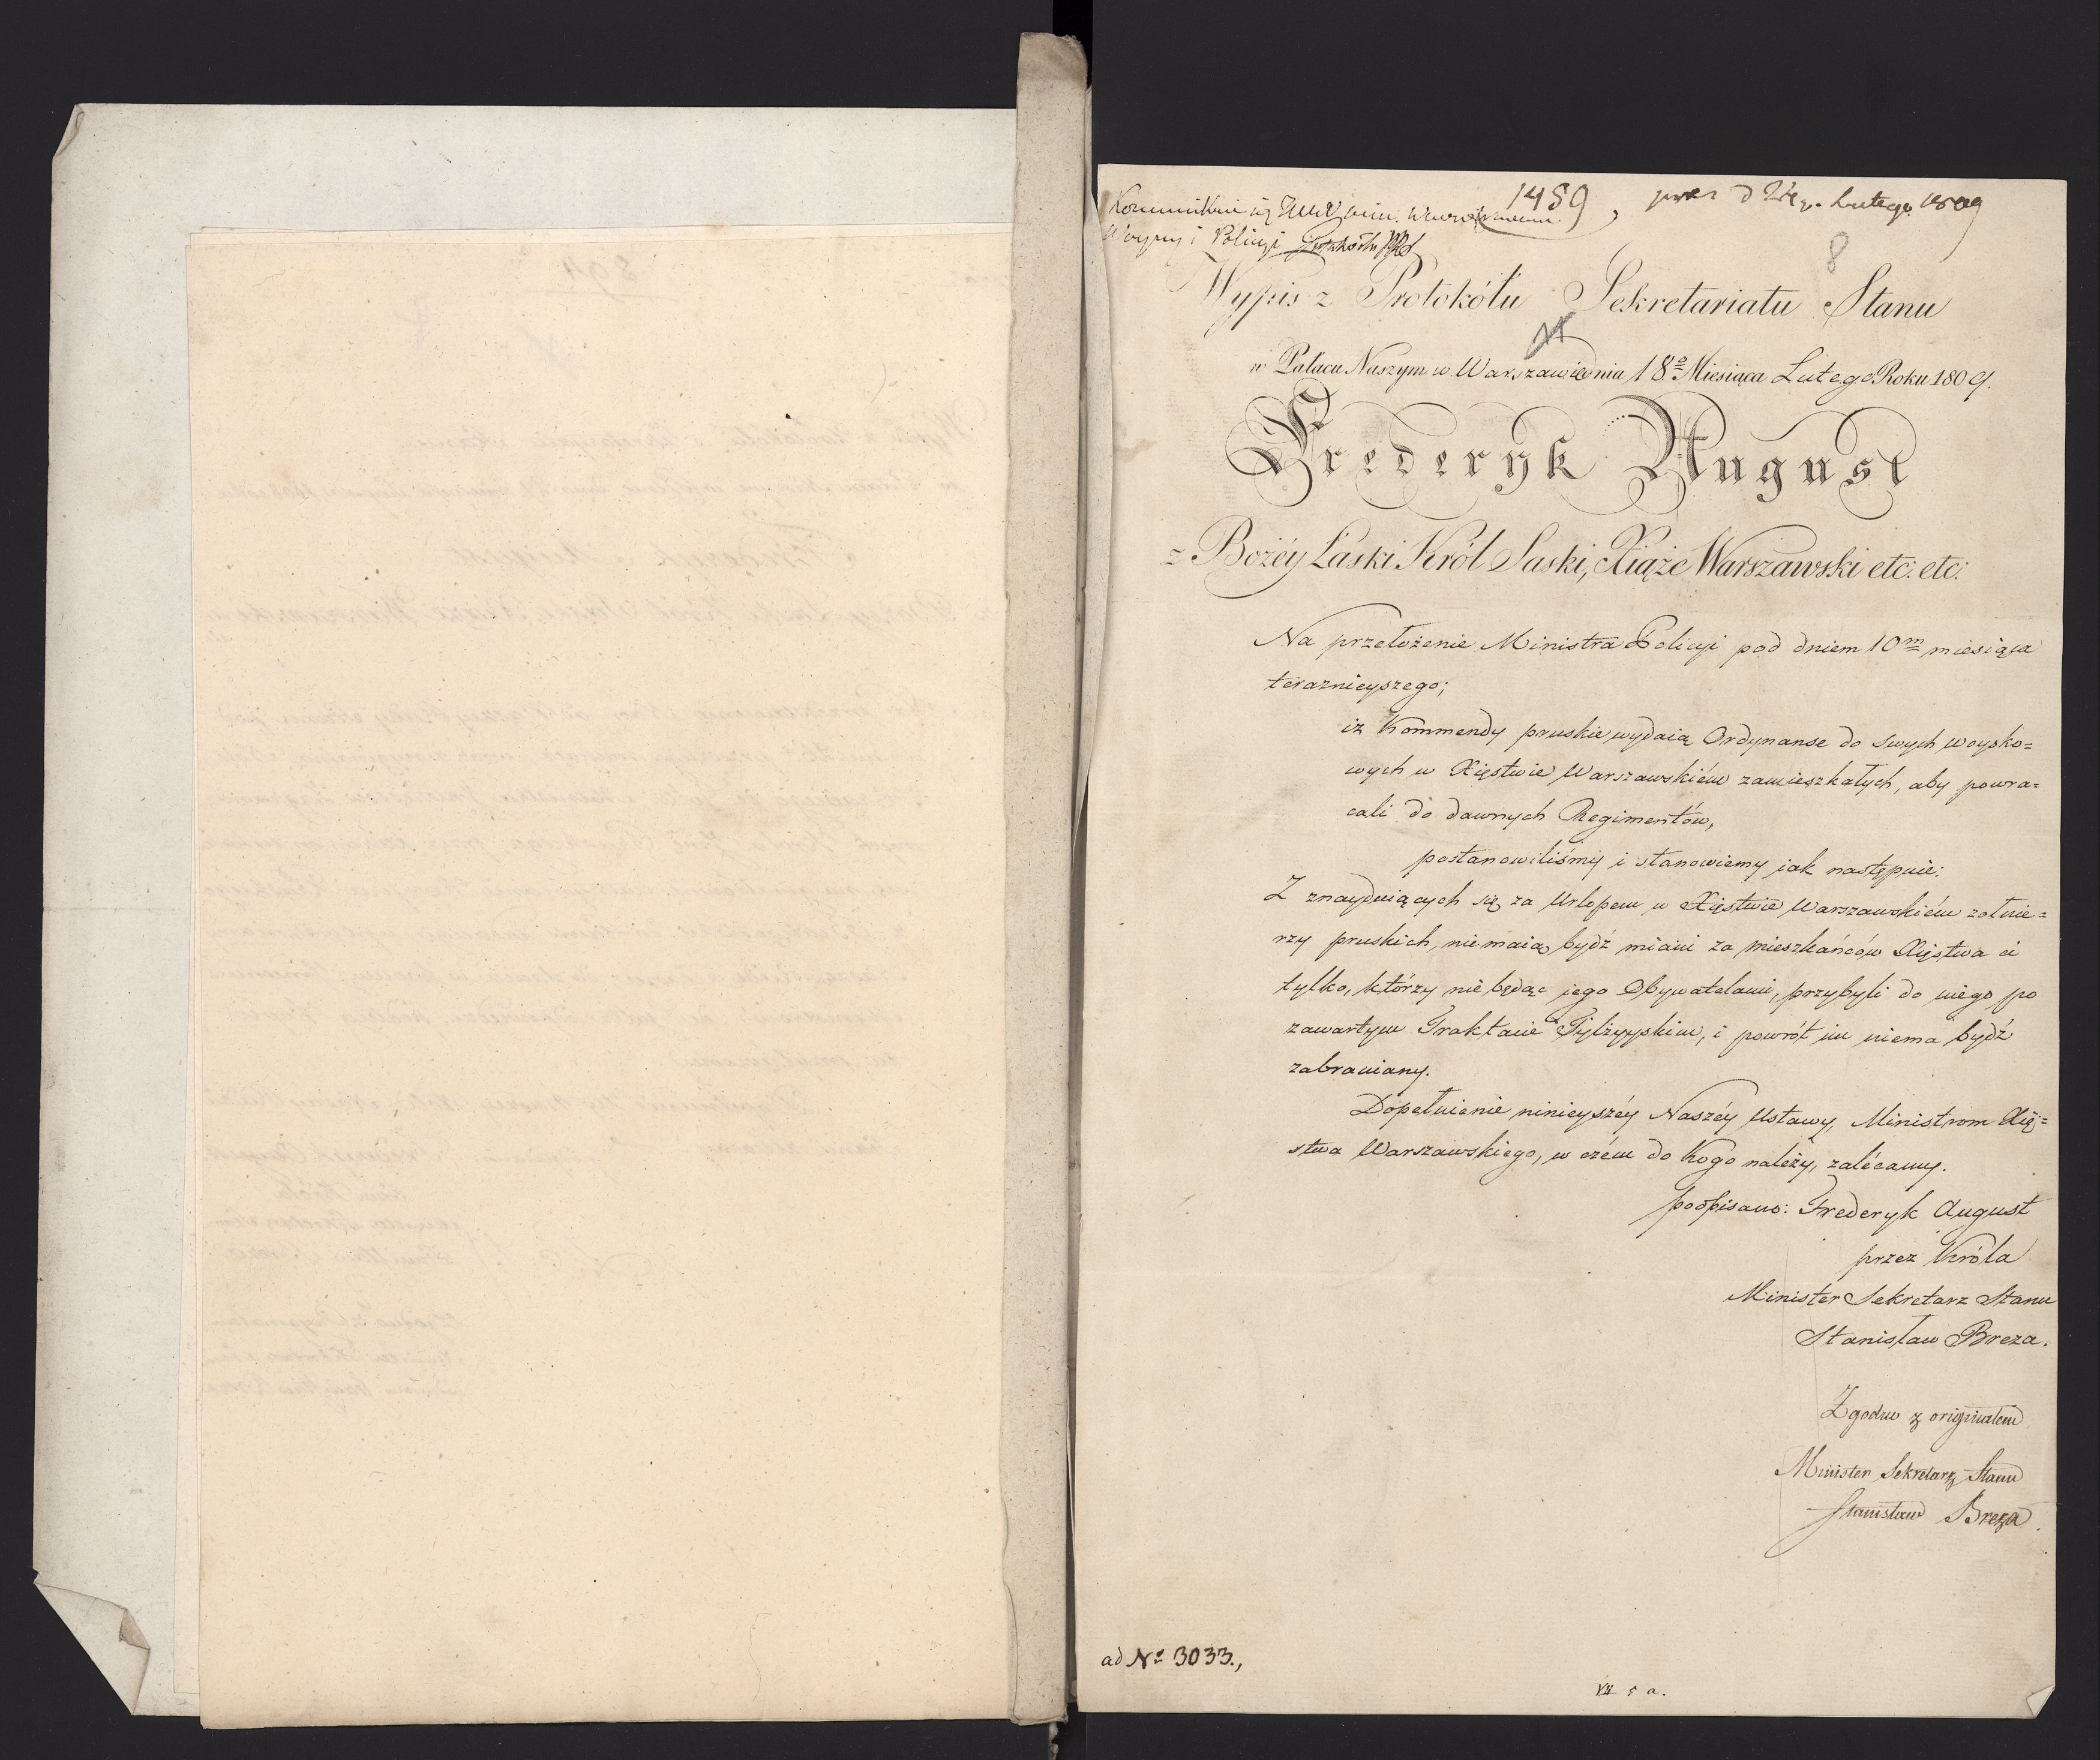 1459, prez d 24 g. Lutego 1809
Kommunikuie się JWW min. Wewnętrznemu
Woyny i Policyi
8
Wypis z Protokółu Sekretariatu Stanu
w Pałacu Naszym w Warszawie dnia 18º Miesiąca Lutego Roku 1809.
Frederyk August
z Bożéy Łaski Król Saski, Xiąże Warszawski etc: etc:
Na przełożenie Ministra Policyi pod dniem 10m miesiąca
teraznieyszego;
iz Kommendy pruskie wydaią Ordynanse do swych woysko=
wych w Xięstwie Warszawskiém zamieszkałych, aby powra=
cali do dawnych Regimentów,
postanowiliśmy i stanowiemy jak następuie:
Z znayduiących się za Urlopem w Xięstwie Warszawskiém żołnie=
rzy pruskich, nie maią bydź miani za mieszkańców Xięstwa ci
tylko, którzy nie będąc jego Obywatelami, przybyli do niego po
zawartym Traktacie Tylżyyskim, i powrót im niema bydź
zabraniany.
Dopełnienie ninieyszéy Naszéy Ustawy, Ministrom Xię=
stwa Warszawskiego, w czém do kogo należy, zalécamy.
podpisano: Frederyk August
przez Króla
Minister Sekretarz Stanu
Stanisław Breza.
Zgodno z originałem
Minister Sekretarz Stanu
Stanisław Breza.
ad No 3033.,
VII 5 a.